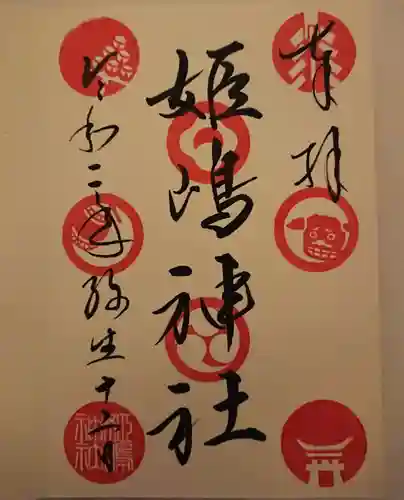 奉拝
姫嶋神社
令和二年弥生十六日
姫嶋神社